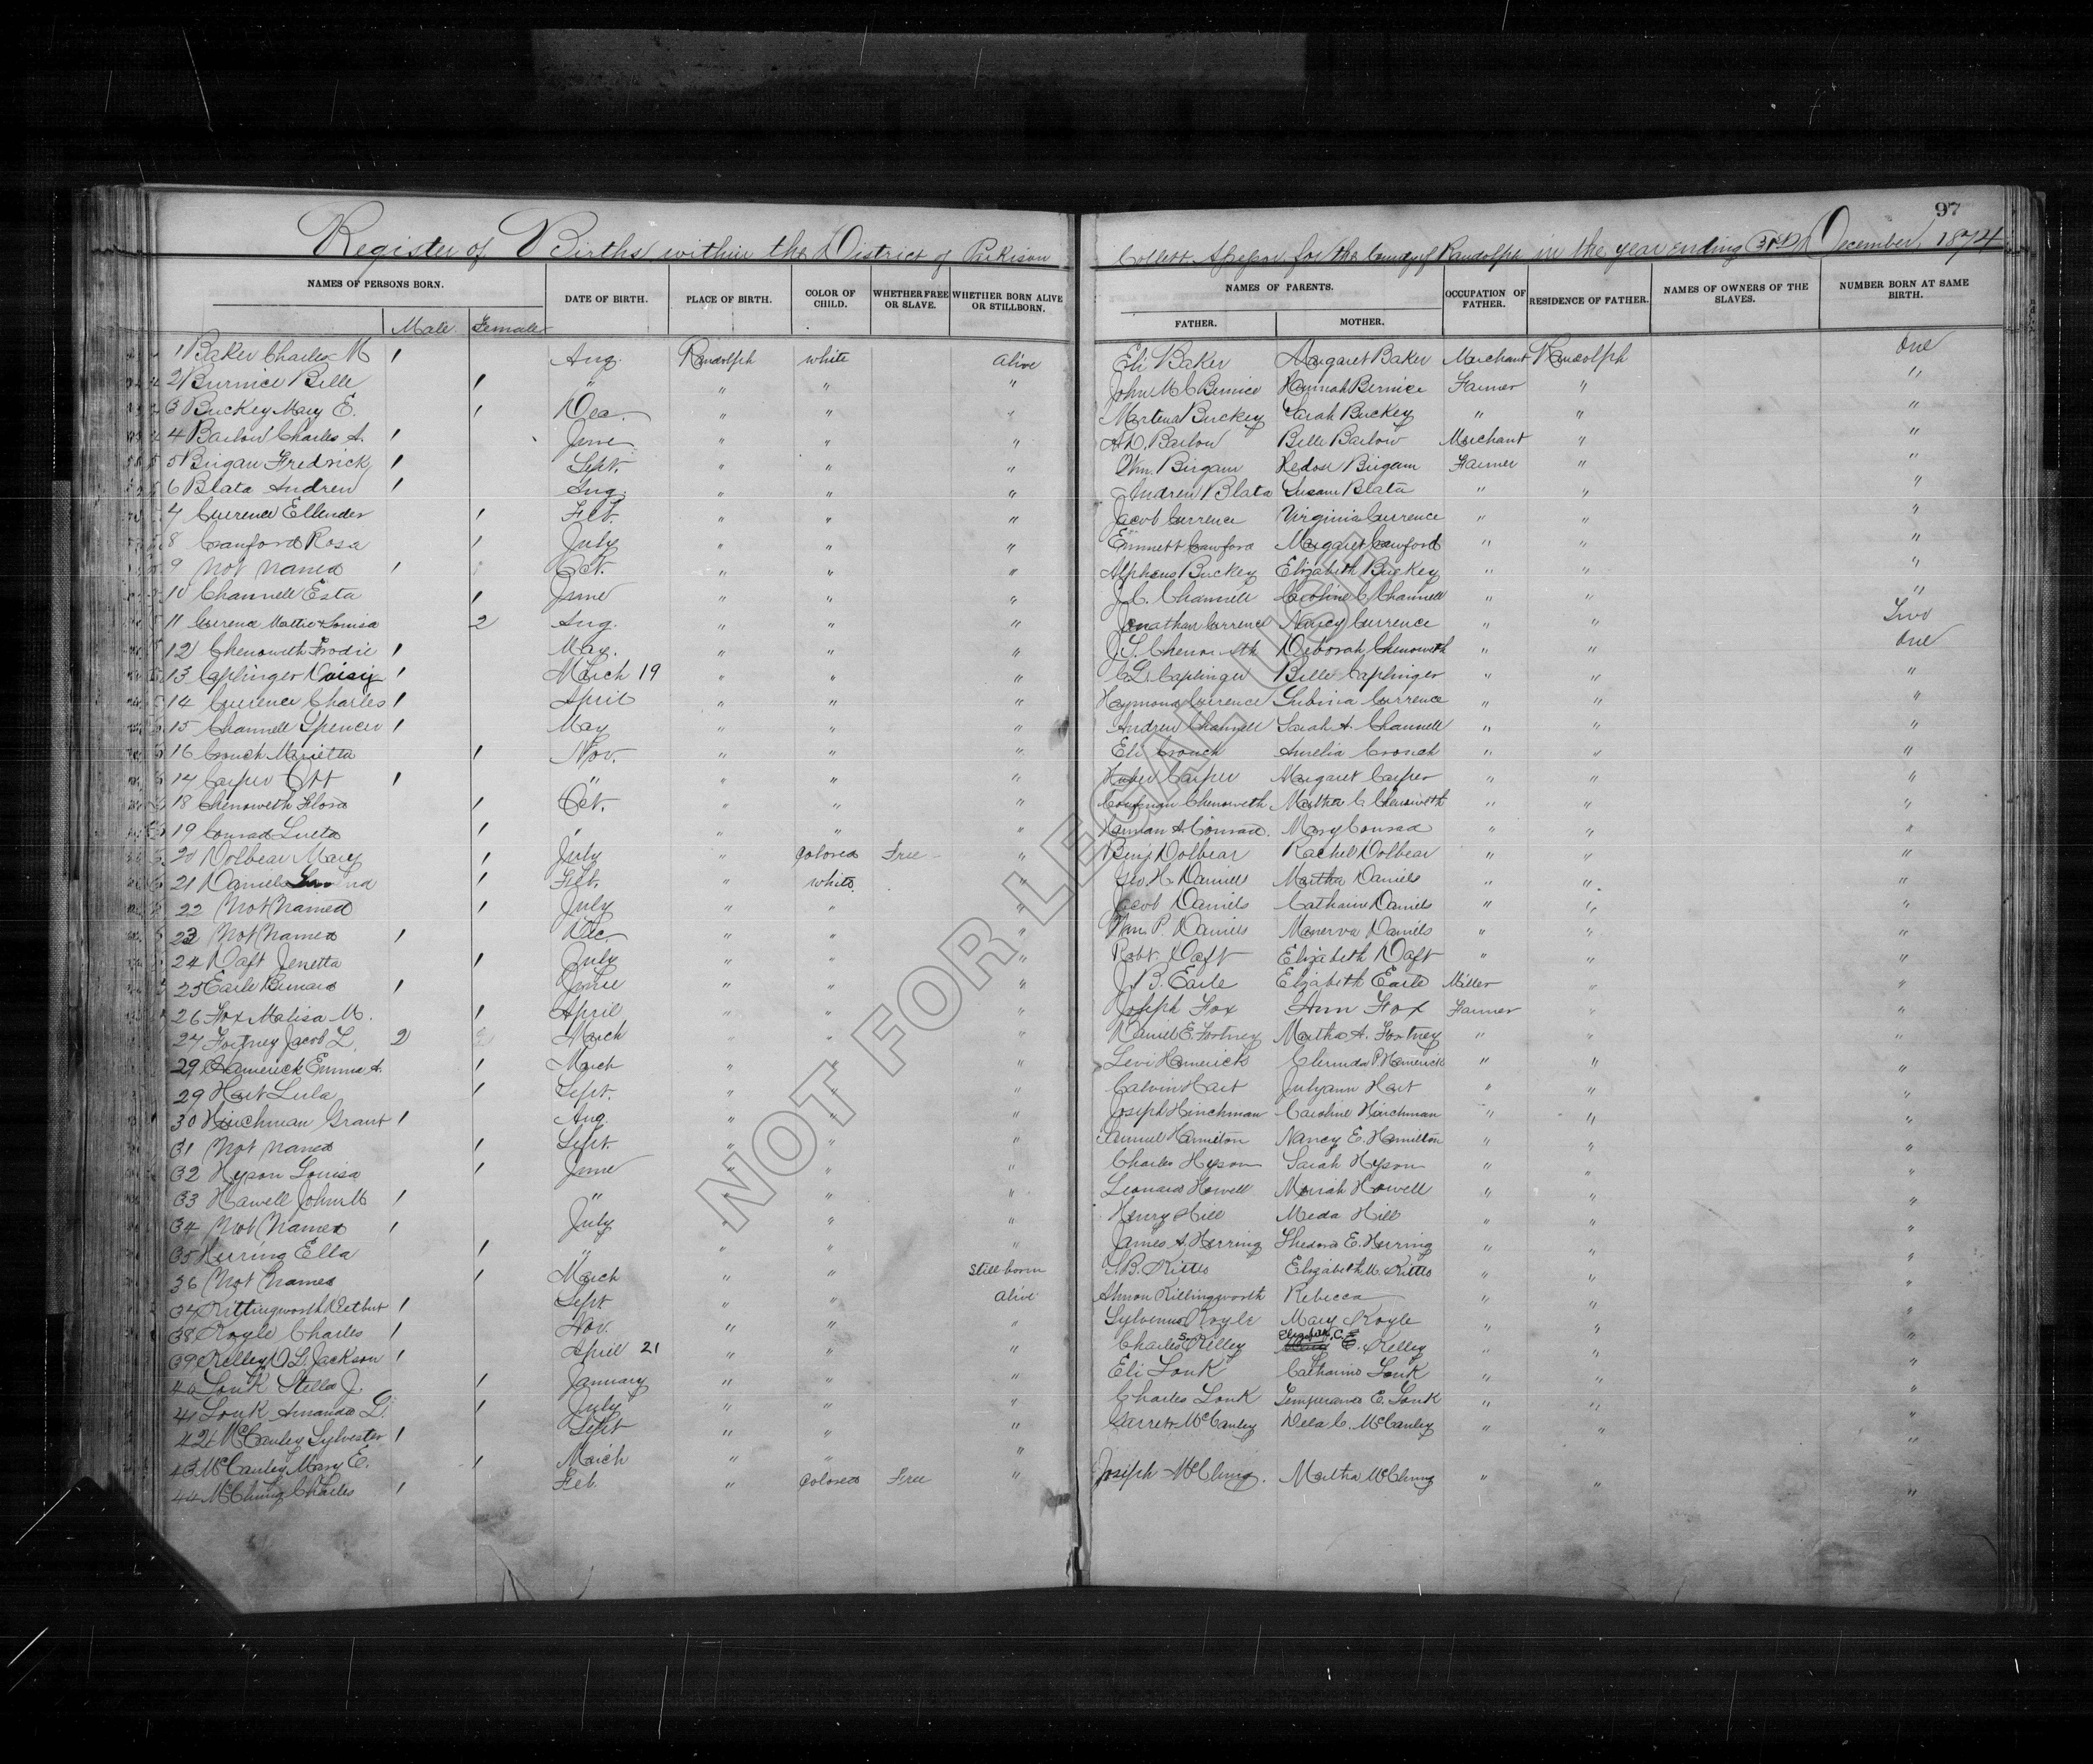 97
Register of Births within the District of Parkison Collett Assessor for the County of Randolph in the year ending 31st December, 1874
NAMES OF PERSONS BORN. DATE OF BIRTH. PLACE OF BIRTH. COLOR OF CHILD. WHETHER FREE OR SLAVE. WHETHER BORN ALIVE OR STILLBORN. NAMES OF PARENTS. OCCUPATION OF FATHER. RESIDENCE OF FATHER. NAMES OF OWNERS OF THE SLAVES. NUMBER BORN AT SAME BIRTH.
Male Female FATHER. MOTHER.
1 Baker Charles M 1 Aug. Randolph white alive Eli Baker Margaret Baker Merchant Randolph One
2 Burnice Belle 1 " " " " John M C Bernice Hannah Bernice Farmer " "
3 Buckey Mary E. 1 Dec. " " " Buckey Sarah Buckey " " "
4 Barlow Charles A. 1 June " " " A.D. Barlow Belle Barlow Merchant " "
5 Birgam Fredrick 1 Sept. " " " Wm. Birgam Birgam Farmer " "
6 Blata Andrew 1 Aug. " " " Andrew Blata Susan Blata " " "
7 Currence Ellender 1 Feb. " " " Jacob Currence Virginia Currence " " "
8 Crawford Rosa 1 July " " " Emmett Crawford Margaret Crawford " " "
9 Not Named 1 Oct. " " " Alpheus Buckey Elizabeth Buckey " " "
10 Channell Esta 1 June " " " J.C. Channell Caroline C Channell " " "
11 Currence Mattie & Louisa 2 Aug. " " " Jonathan Currence Nancy Currence " " Two
12 Chenoweth Frodie 1 May. " " " J.S. Chenoweth Deborah Chenoweth " " One
13 Caplinger Daisy 1 March 19 " " " C.L. Caplinger Belle Caplinger " " "
14 Currence Charles 1 April " " " Haymond Currence Lubinia Currence " " "
15 Channell Spencer 1 May " " " Andrew Channell Sarah A. Channell " " "
16 Crouch Marietta 1 Nov. " " " Eli Crouch Aurelia Crouch " " "
17 Casper Ott 1 " " " " Huber Casper Margaret Casper " " "
18 Chenoweth Flora 1 Oct. " " " Coofman Chenoweth Martha C Chenoweth " " "
19 Conrad Lueta 1 " " " " Harman A. Conrad. Mary Conrad " " "
20 Dolbear Mary 1 July " Colored Free " Benj. Dolbear Rachel Dolbear " " "
21 Daniels 1 Feb. " white. " Geo H. Daniels Martha Daniels " " "
22 Not Named 1 July " " " Jacob Daniels Catharine Daniels " " "
23 Not Named 1 Dec. " " " Wm. P. Daniels Manerva Daniels " " "
24 Daft Jenetta 1 July " " " Robt. Daft Elizabeth Daft " " "
25 Earle Bernard 1 June " " " J.B. Earle Elizabeth Earle Miller " "
26 Fox Malisa M. 1 April " " " Joseph Fox Ann Fox Farmer " "
27 Fortney Jacob L. 2 March " " " Daniel E. Fortney Martha A. Fortney " " "
29 Hamerick Emma A. 1 March " " " Levi Hamerick Clerinda P. Hamerick " " "
29 Hart Lula 1 Sept. " " " Calvin Hart Julyann Hart " " "
30 Hinchman Grant 1 Aug. " " " Joseph Hinchman Caroline Hinchman " " "
31 Not Named 1 Sept. " " " Samuel Hamilton Nancy E. Hamilton " " "
32 Hyson Louisa 1 June " " " Charles Hyson Sarah Hyson " " "
33 Hawell John M 1 " " " Leonard Howell Mariah Howell " " "
34 Not Named 1 July " " " Henry Hill Meda Hill " " "
35 Herring Ella 1 " " " " James A. Herring Shedora E. Herring " " "
36 Not Named 1 March " " Still born S.B. Kittle Elizabeth M. Kittle " " "
37 Killingworth 1 Sept " " Alive Almon Killingworth Rebecca " " "
38 Royle Charles 1 Nov. " " " Sylvenus Royle Mary Royle " " "
39 Kelley O L. Jackson 1 April 21 " " " Charles S. Kelley Elizabeth C. E. Kelley " " "
40 Louk Stella J. 1 January " " " Eli Louk Catharine Louk " " "
41 Louk Amanda L. 1 July " " " Charles Louk Temperance E. Louk " " "
42 McCauley Sylvester 1 Sept " " " Garrett McCauley Dela C. McCauley " " "
43 McCauley Mary E. 1 March " " "
44 McClung Charles 1 Feb. " Colored Free " Joseph McClung. Martha McClung " " "
NOT FOR LEGAL USE